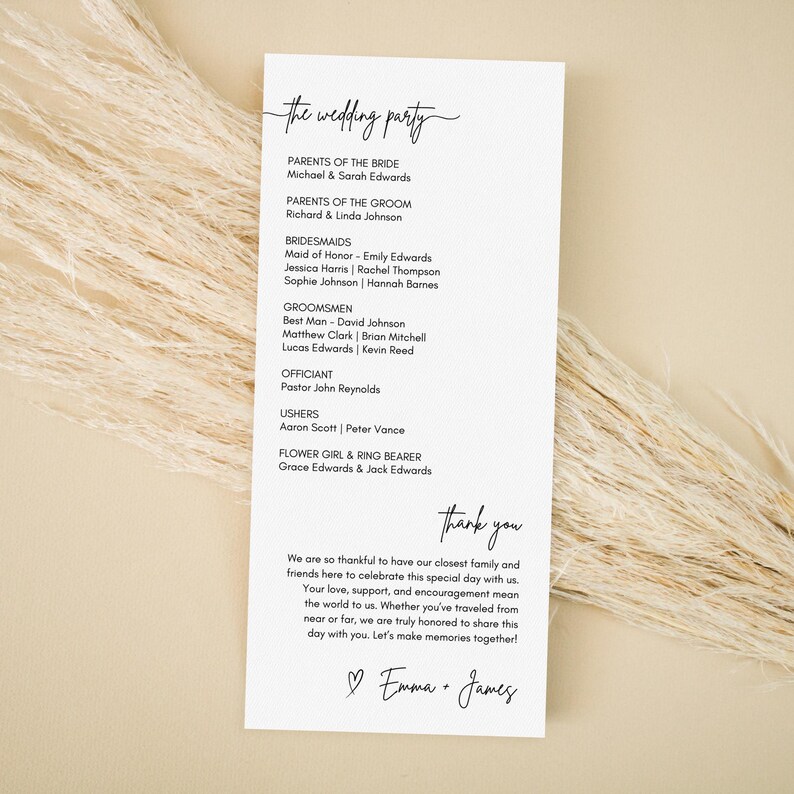 the wedding party
PARENTS OF THE BRIDE
Michael & Sarah Edwards
PARENTS OF THE GROOM
Richard & Linda Johnson
BRIDESMAIDS
Maid of Honor - Emily Edwards
Jessica Harris | Rachel Thompson
Sophie Johnson | Hannah Barnes
GROOMSMEN
Best Man - David Johnson
Matthew Clark | Brian Mitchell
Lucas Edwards | Kevin Reed
OFFICIANT
Pastor John Reynolds
USHERS
Aaron Scott | Peter Vance
FLOWER GIRL & RING BEARER
Grace Edwards & Jack Edwards
thank you
We are so thankful to have our closest family and
friends here to celebrate this special day with us.
Your love, support, and encouragement mean
the world to us. Whether you’ve traveled from
near or far, we are truly honored to share this
day with you. Let’s make memories together!
Emma + James